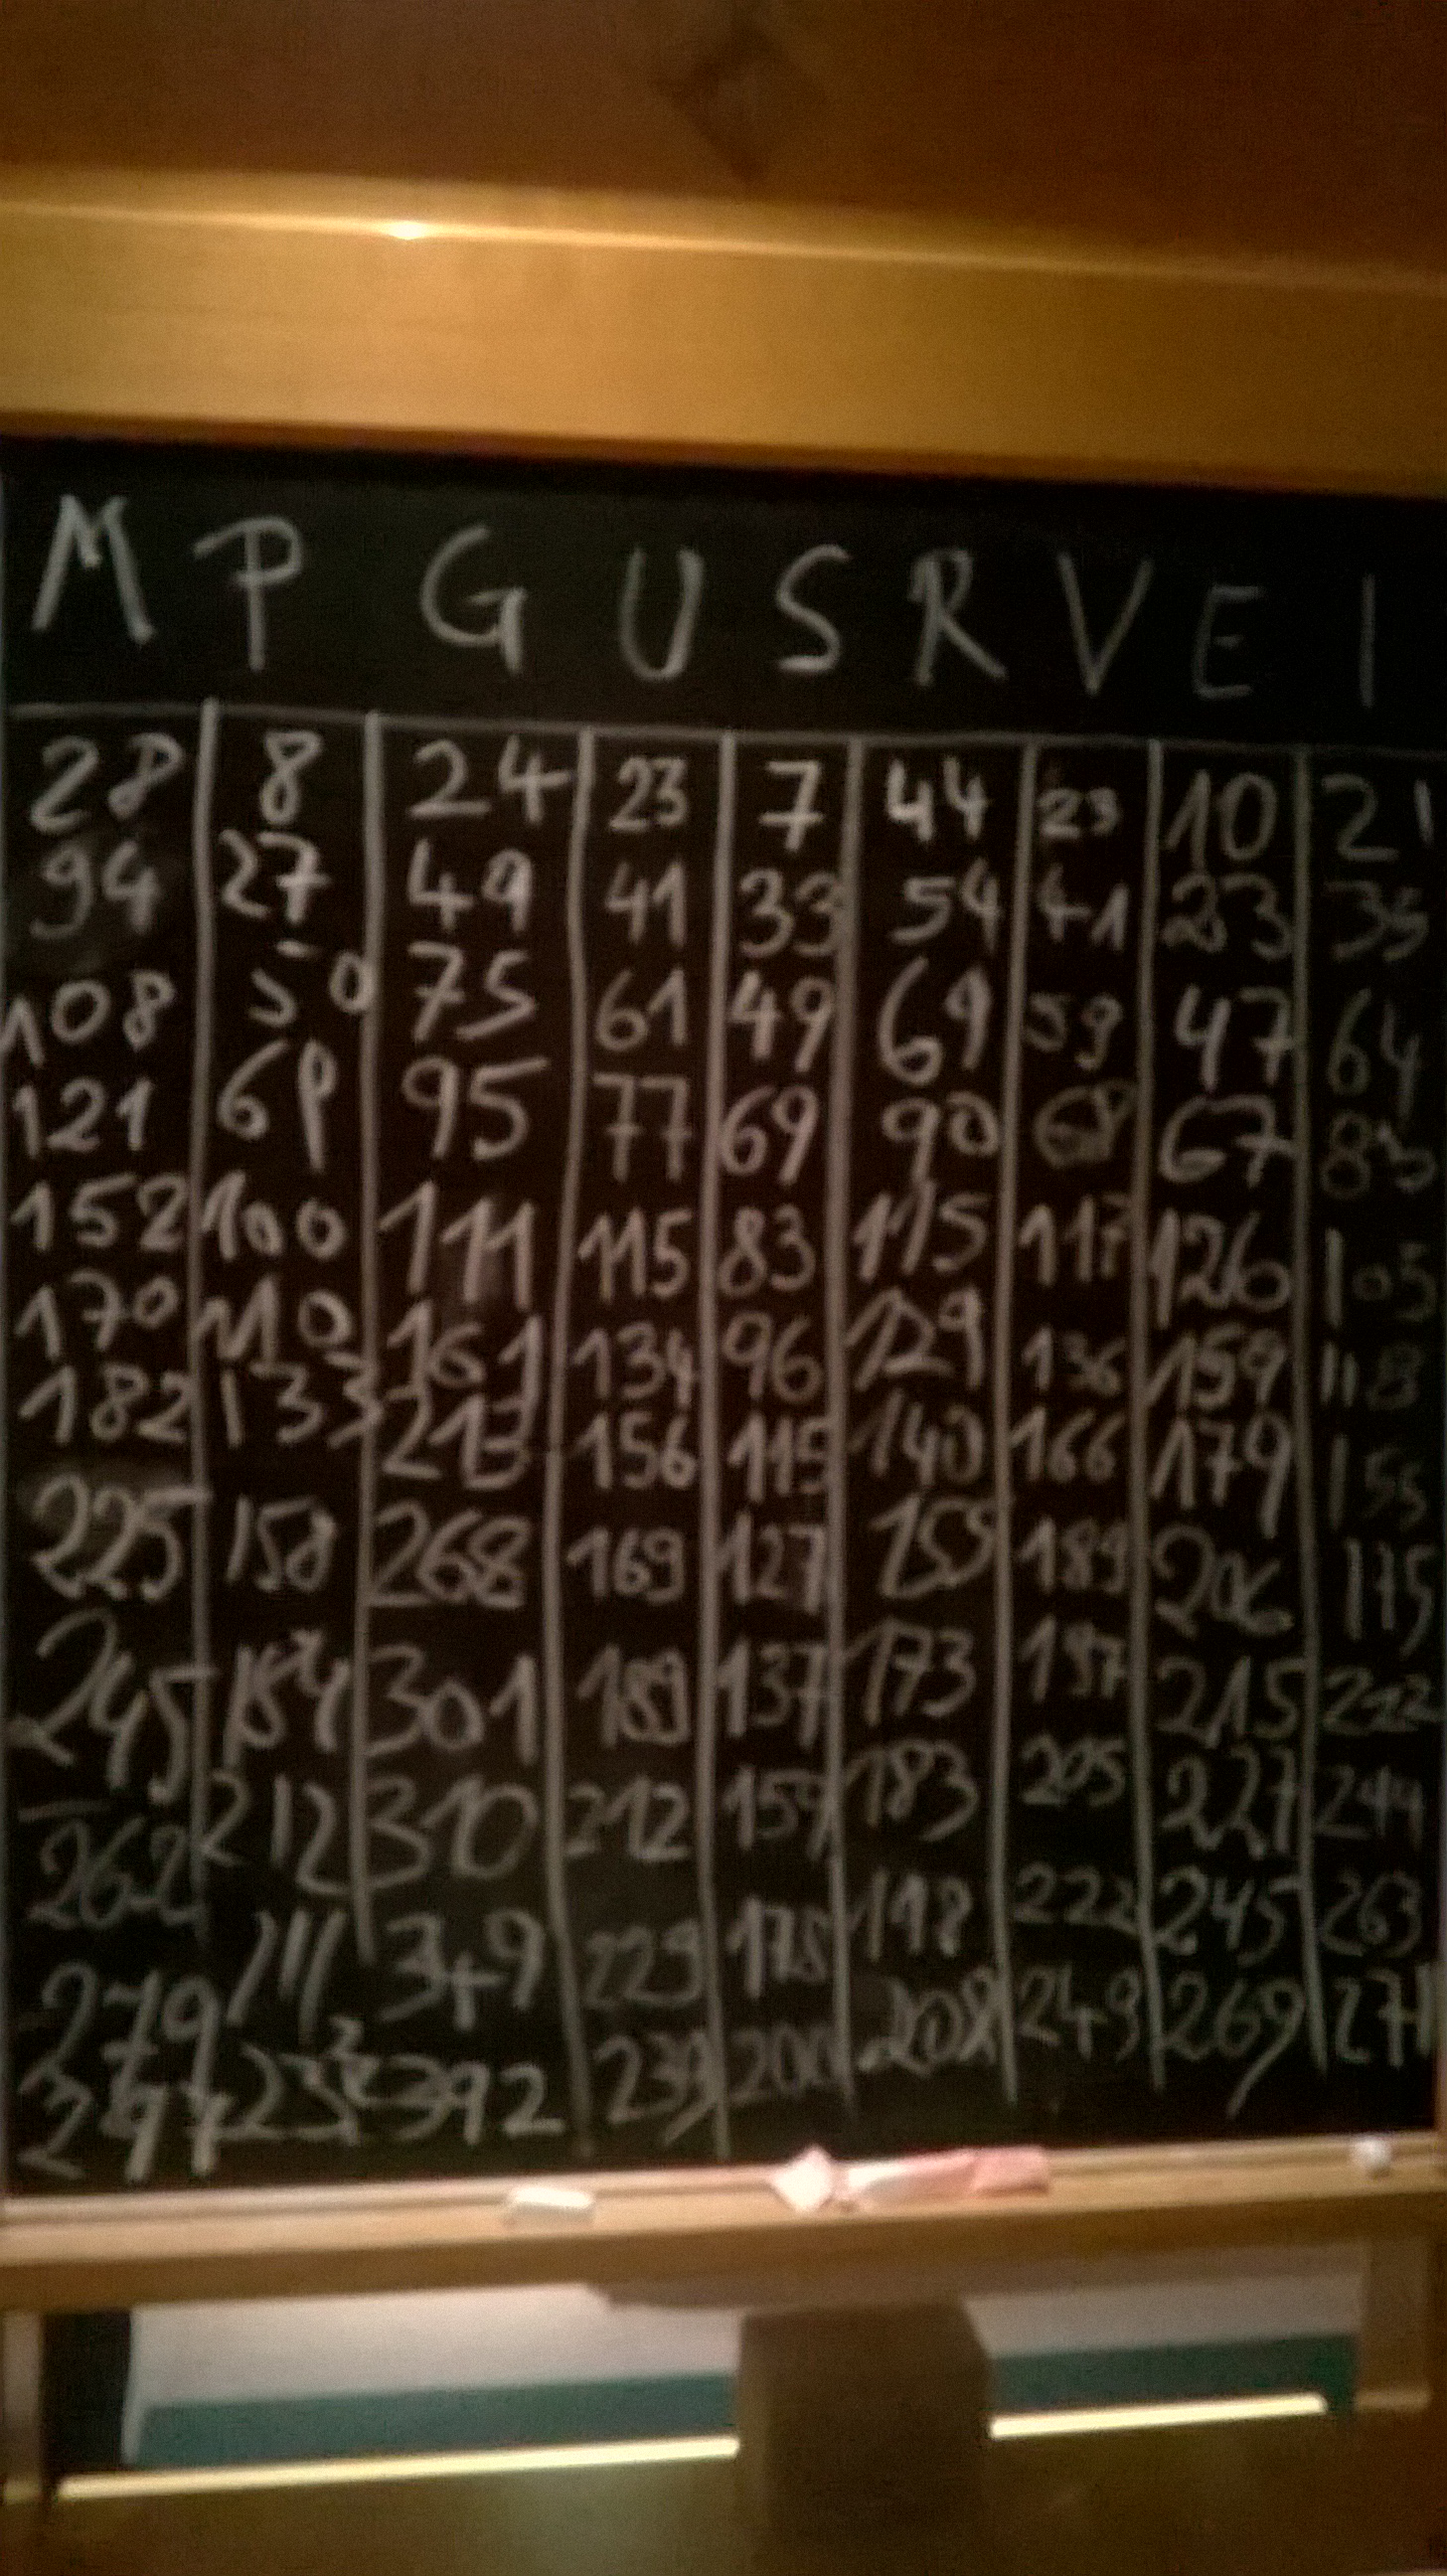 M P G U S R V E I
28 8 24 23 7 44 23 10 21
94 27 49 41 33 54 41 23 35
108 50 75 61 49 69 59 47 64
121 69 95 77 69 90 68 67
152 100 111 115 83 115 117 126 105
170 110 161 134 96 129 136 159 118
182 133 213 156 115 140 166 179 155
225 158 268 169 127 159 189 206 175
245 184 301 189 137 173 197 215 222
262 212 310 212 159 183 205 227 244
279 111 349 229 178 198 222 245 263
297 232 392 239 200 208 249 269 271